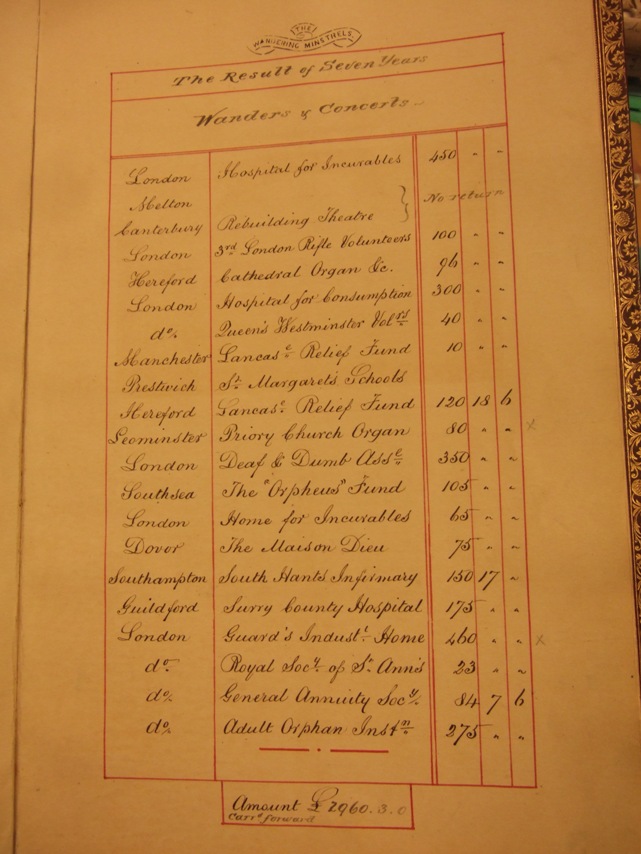 THE
WANDERING MINSTRELS.
The Result of Seven Years
Wanders & Concerts
London Hospital for Incurables 450 " "
Melton } No return
Canterbury Rebuilding Theatre
London 3rd London Rifle Volunteers 100 " "
Hereford Cathedral Organ &c. 96 " "
London Hospital for Consumption 300 " "
do. Queen's Westminster Volrs 40 " "
Manchester Lancase Relief Fund 10 " "
Prestwich St Margarets Schools
Hereford Lancase. Relief Fund 120 18 6
Leominster Priory Church Organ 80 " " x
London Deaf & Dumb Asse 350 " "
Southsea The "Orpheus" Fund 105 " "
London Home for Incurables 65 " "
Dover The Maison Dieu 75 " "
Southampton South Hants Infirmary 150 17 "
Guildford Surry County Hospital 175 " "
London Guard's Industl Home 460 " " x
do. Royal Socy. of St Ann's 23 " "
do. General Annuity Socy. 84 7 6
do. Adult Orphan Instn 275 " "
Amount £ 2960.3.0
Carrd forward